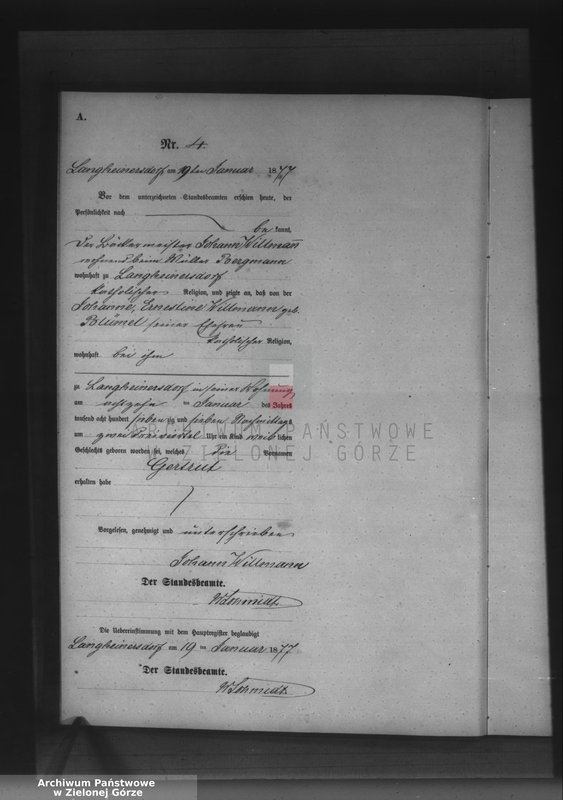 A.
Nr. 4.
Langheinersdorf am 19ten Januar 1877
Vor dem unterzeichneten Standesbeamten erschien heute, der
Persönlichkeit nach
be kannt,
Der Böckermeister Johann Willmann
wohnend beim Müller Bergmann
wohnhaft zu Langheinersdorf
katholischer Religion, und zeigte an, daß von der
Johanne, Ernestine Willmann geb.
Blümel seiner Ehefrau
katholischer Religion,
wohnhaft bei ihm
zu Langheinersdorf in seiner Wohnung
am achtzehn ten Januar des Jahres
tausend acht hundert sieben zig und sieben Nachmittags
um zwei dreiviertel Uhr ein Kind weib lichen
Geschlechts geboren worden sei, welches die Vornamen
Gertrut
erhalten habe
Vorgelesen, genehmigt und unterschrieben
Johann Willmann
Der Standesbeamte.
W Schmidt
Die Uebereinstimmung mit dem Hauptregister beglaubigt
Langheinersdorf am 19 ten Januar 1877
Der Standesbeamte.
W Schmidt
ARCHIWUM PAŃSTWOWE
W ZIELONEJ GÓRZE
Archiwum Państwowe
w Zielonej Górze